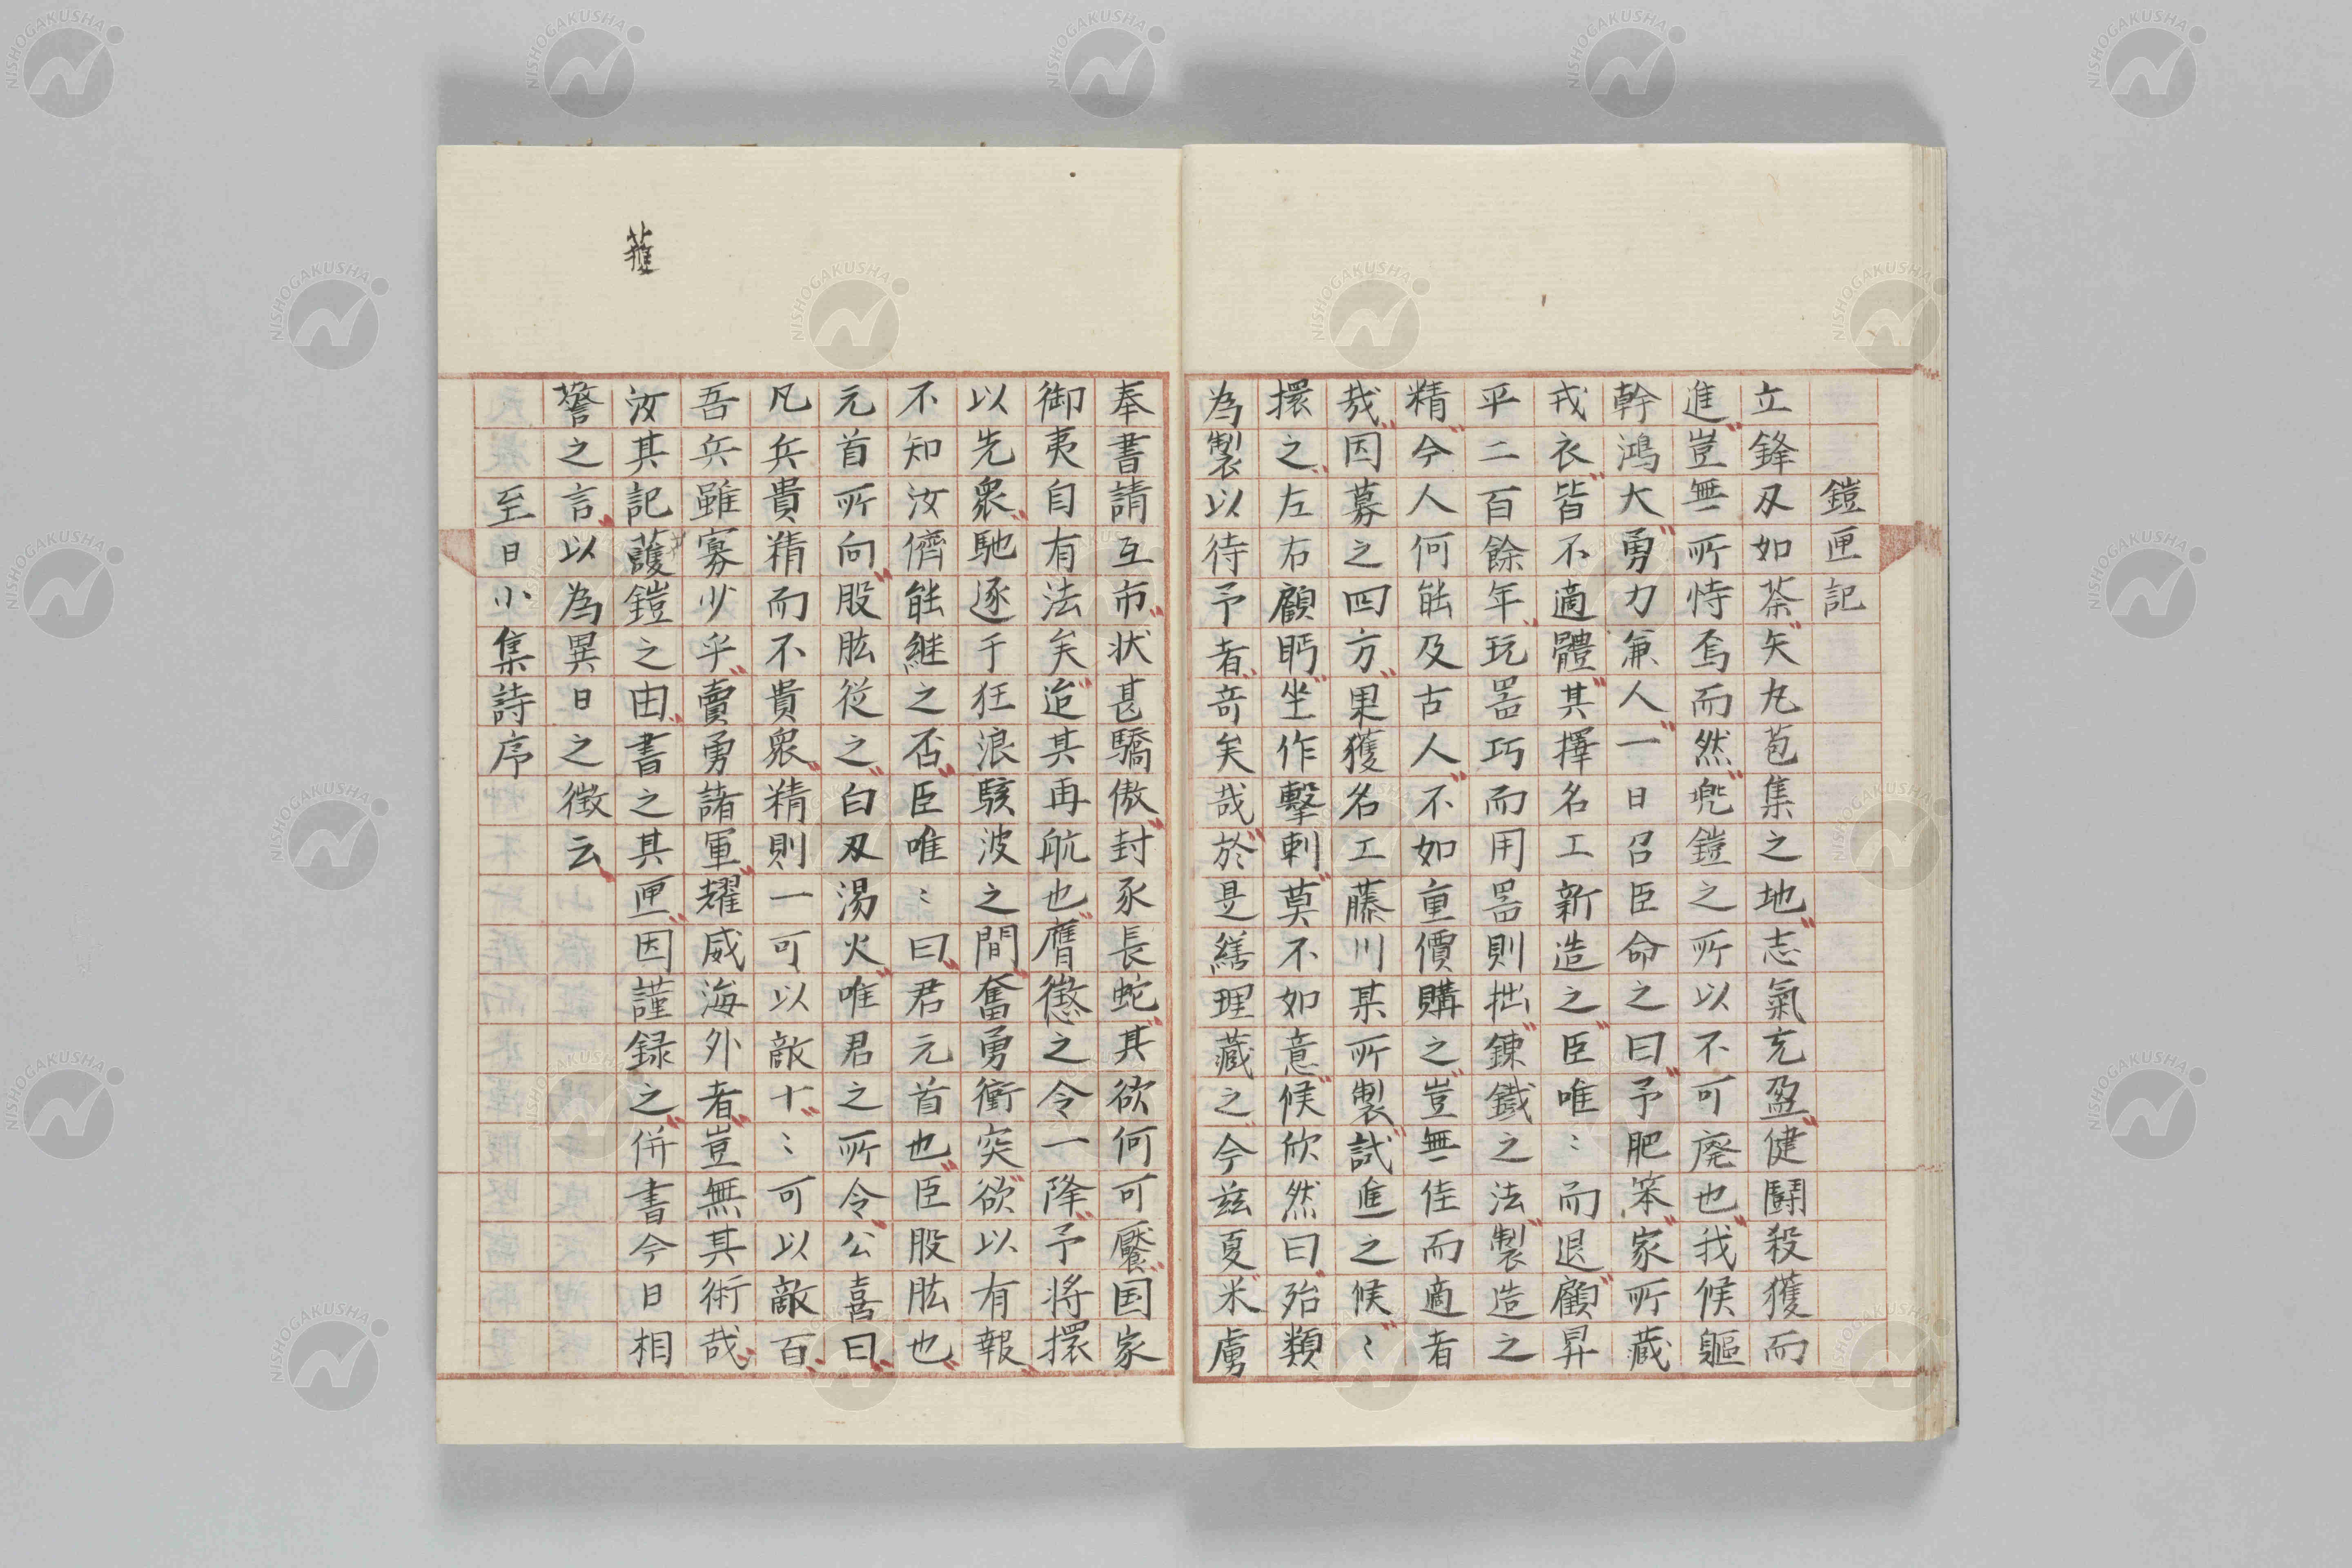 鎧匣記
立鋒刃如荼矢丸苞集之地志氣充盈健鬪殺獲而
進豈無所恃焉而然兠鎧之所以不可廃也我候軀
幹鴻大勇力兼人一日召臣命之曰予肥笨家所蔵
戎衣皆不適體其擇名工新造之臣唯〻而退顧昇
平二百餘年玩噐巧而用噐則拙錬鐡之法製造之
精今人何能及古人不如重價購之豈無佳而適者
哉因募之四方果獲名工藤川某所製試進之候〻
擐之左右顧眄坐作擊刺莫不如意候欣然曰殆類
為製以待予者竒矣哉於是繕理藏之今兹夏米虜
奉書請互市状甚驕傲封豕長蛇其欲何可饜国家
御夷自有法矣迨其再航也膺懲之令一降予将擐
以先衆馳逐于狂浪駭波之間奮勇衝突欲以有報
不知汝儕能継之否臣唯〻曰君元首也臣股肱也
元首所向股肱従之白刃湯火唯君之所令公喜曰
凡兵貴精而不貴衆精則一可以敵十〻可以敵百
吾兵雖寡少乎賣勇諸軍耀威海外者豈無其術哉
汝其記護鎧之由書之其匣因謹録之併書今日相
警之言以為異日之徴云
至日小集詩序
NISHOGAKUSHA